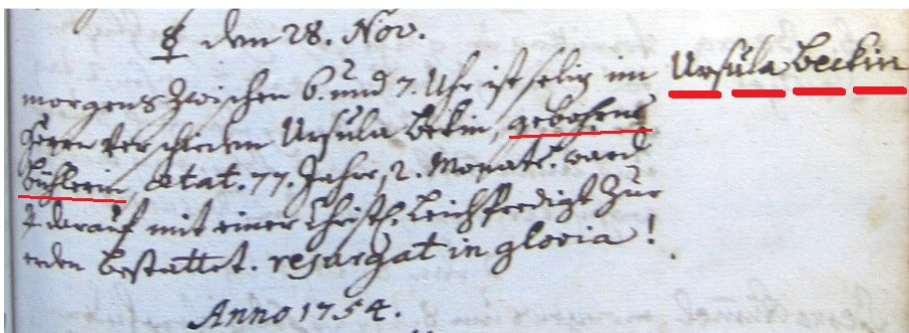 ☿ den 28. Nov.
morgens zwischen 6. und 7. Uhr ist selig im
Herrn verschieden Ursula Bekin, gebohrne
Bühlerin, ætat. 77. Jahr, 2. Monate. ward
darauf mit einer Christl. Leichpredigt zur
erden bestattet. resurgat in gloria!
Ursula Beckin
Anno 1754.